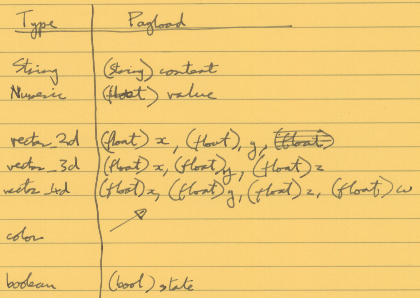 Type Payload
String (string) content
Numeric (float) value
vector_2d (float) x, (float), y, (float)
vector_3d (float) x, (float) y, (float) z
vector_4d (float) x, (float) y, (float) z, (float) w
color
boolean (bool) state